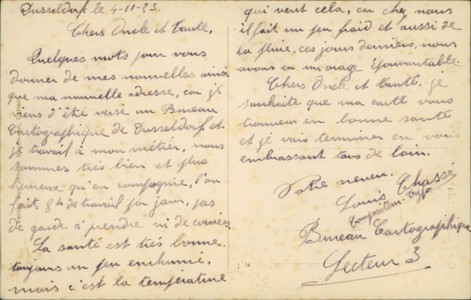 Dusseldorf le 4-11-23.
Chers Oncle et tante.
Quelques mots pour vous
donner de mes nouvelles ainsi
que ma nouvelle adresse, car je
viens d'être versé au Bureau
Cartographique de Dusseldorf et
je travail à mon métier, nous
sommes très bien et plus
heureux qu'en compagnie, l'on
fait 8h de travail par jour, pas
de garde à prendre ni de corvées.
La santé est très bonne,
toujours un peu enrhumé,
mais c'est la température
qui veut cela, car chez nous
il fait un peu froid et aussi de
la pluie, ces jours derniers, nous
avons eu un orage épouvantable
Chers Oncle et tante. je
souhaite que ma carte vous
trouvera en bonne santé
et je vais terminer en vous
embrassant tous de loin.
Votre neveu.
Louis Chassé
Compositeur-typo
Bureau Cartographique
Secteur 3